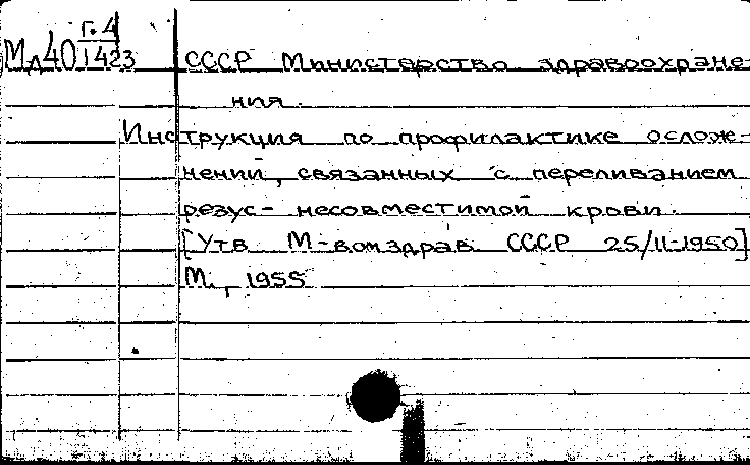 Г.4
Мд40 1423 СССР Министерство здравоохране-
ния.
Инструкция по профилактике осложе-
нений, связанных с переливанием
резус- несовместимой крови.
[Утв М-вомздрав. СССР 25/II-1950]
М., 1955